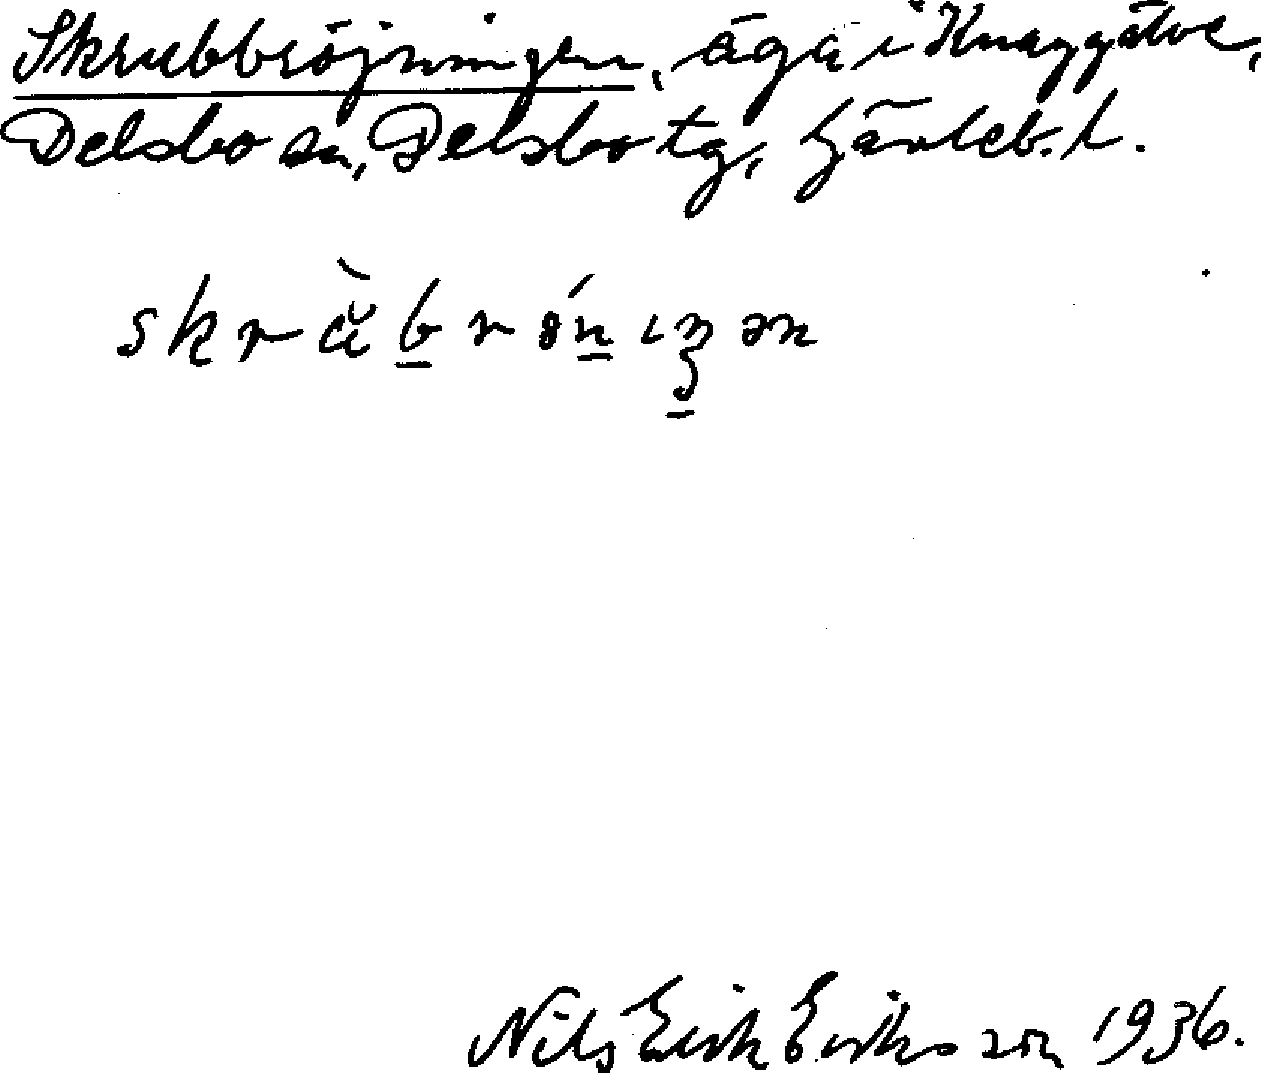 Skrubbröjningen, äga i Knaggälve,
Delsbo sn, Delsbo tg, Gävleb. l.
skrùbrǿnıŋən
Nils Erik Eriksson 1936.